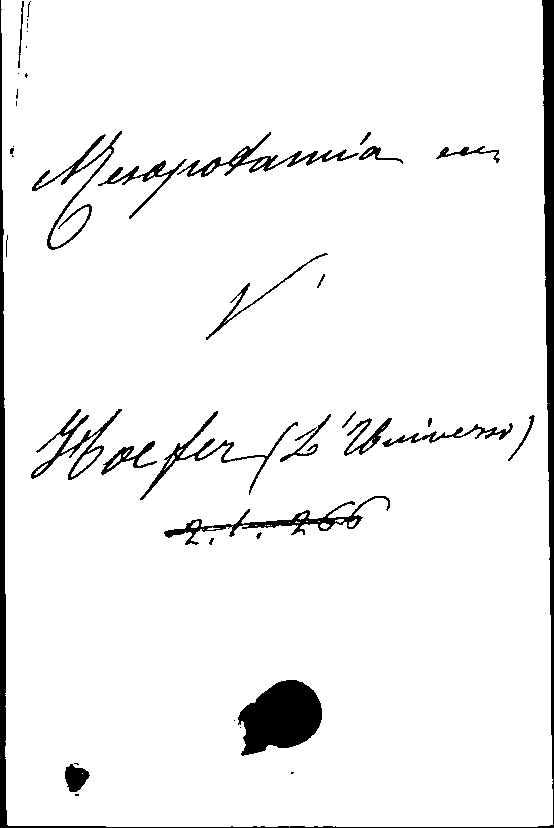 Mesopotamia
V.
Hoefer (L'Universo)
2. 1. 266